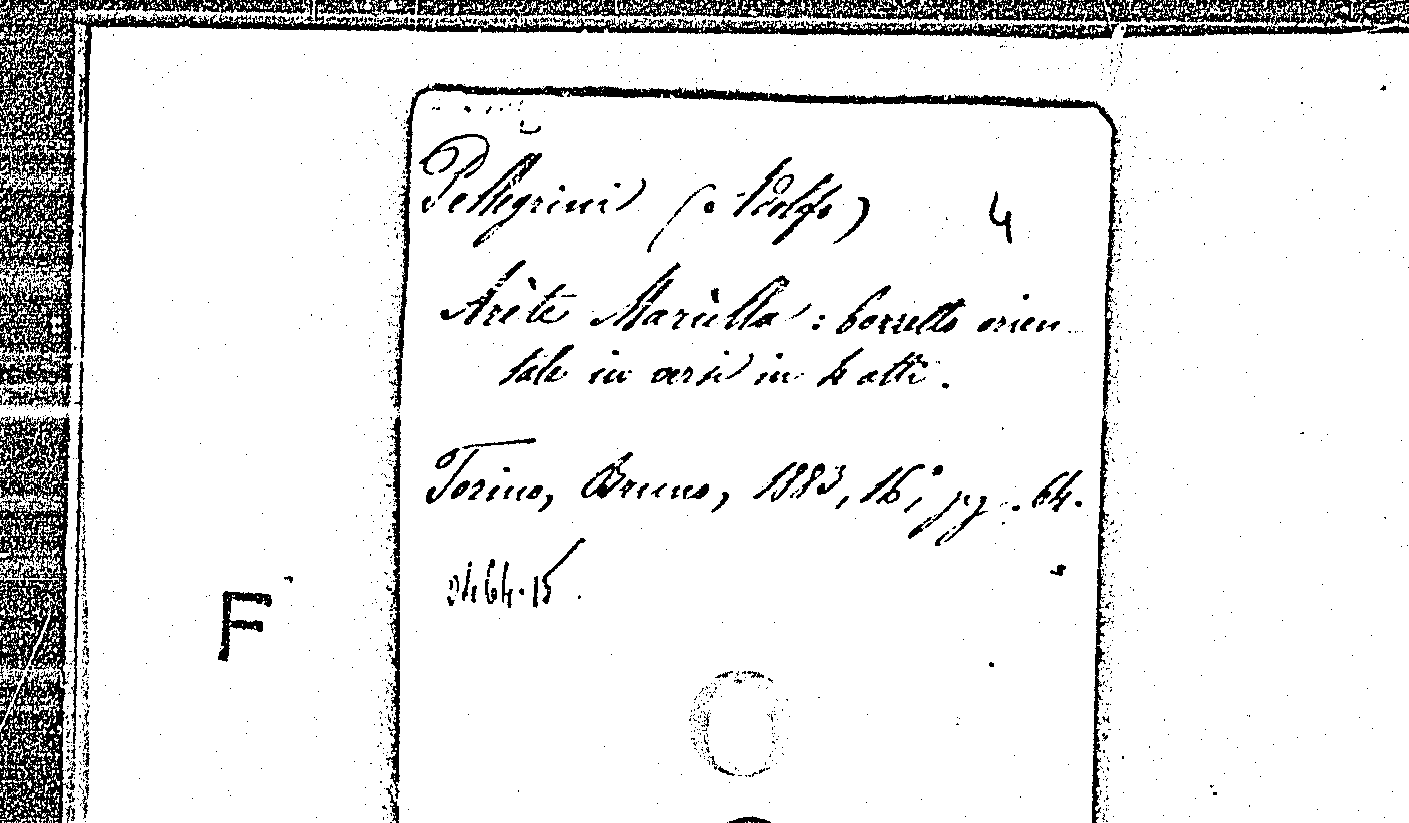 Pellegrini (Adolfo) 4
Arète Mariella : bozzetto orien-
tale in versi in 4 atti.
Torino, Bruno, 1883, 16°, pg. 64.
2464.15
F